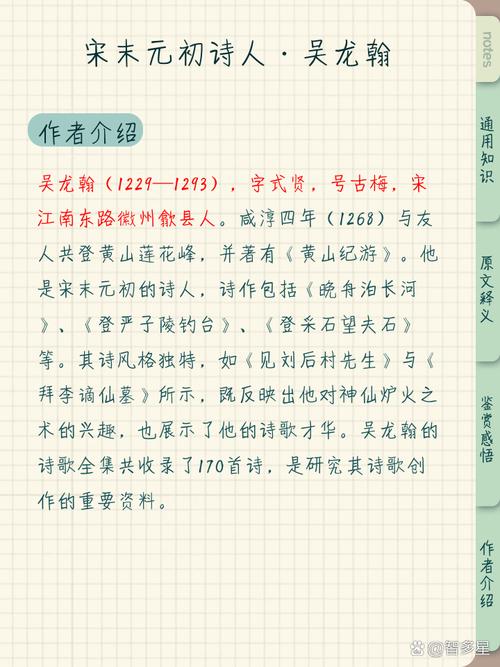 宋末元初诗人·吴龙翰
作者介绍
吴龙翰（1229—1293），字式贤，号古梅，宋
江南东路徽州歙县人。咸淳四年（1268）与友
人共登黄山莲花峰，并著有《黄山纪游》。他
是宋末元初的诗人，诗作包括《晚舟泊长河
》、《登严子陵钓台》、《登采石望夫石》
等。其诗风格独特，如《见刘后村先生》与《
拜李谪仙墓》所示，既反映出他对神仙炉火之
术的兴趣，也展示了他的诗歌才华。吴龙翰的
诗歌全集共收录了170首诗，是研究其诗歌创
作的重要资料。
notes
通用知识
原文释义
鉴赏感悟
作者介绍
@智多星